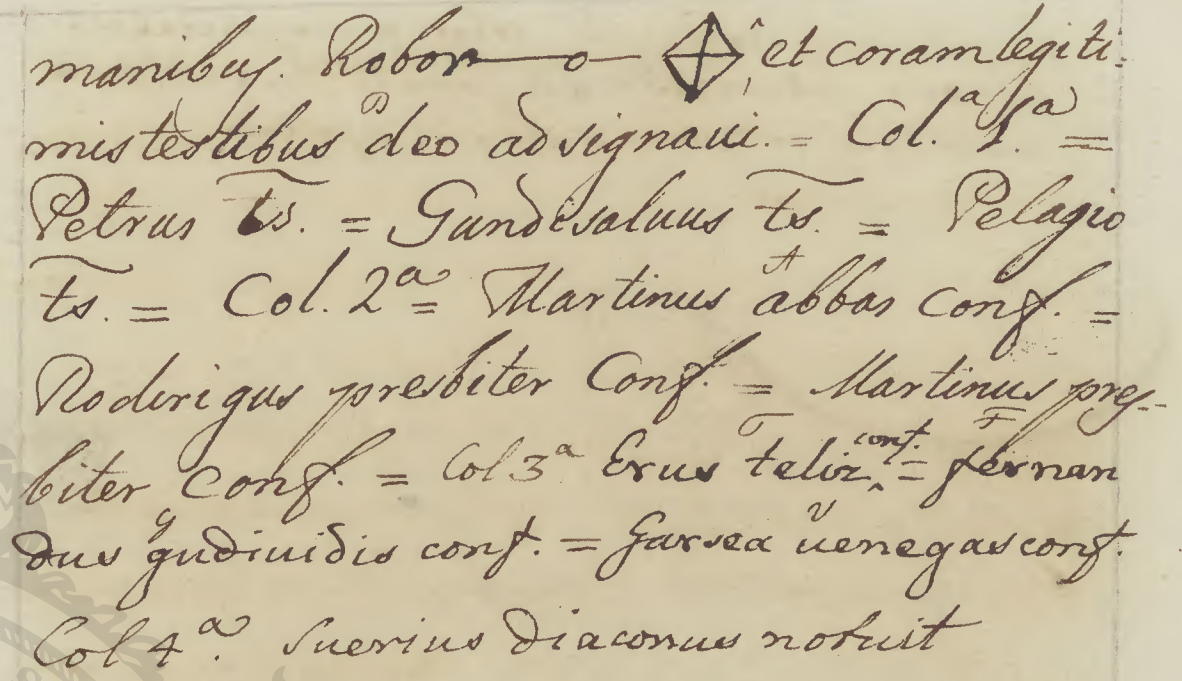 manibus. Robor——o— et coram legiti:
mis testibus deo adsignaui. = Col.ª 1.ª =
Petrus ts. = Gundisaluus ts. = Pelagio
ts. = Col. 2ª = Martinus abbas Conf. =
Roderigus presbiter Conf. = Martinus pres-
biter Conf. = Col 3ª Erus feliz conf. = fernan
dus gudiuidis conf. = Garsea uenegas conf.
Col 4ª. Suerius diaconus notuit